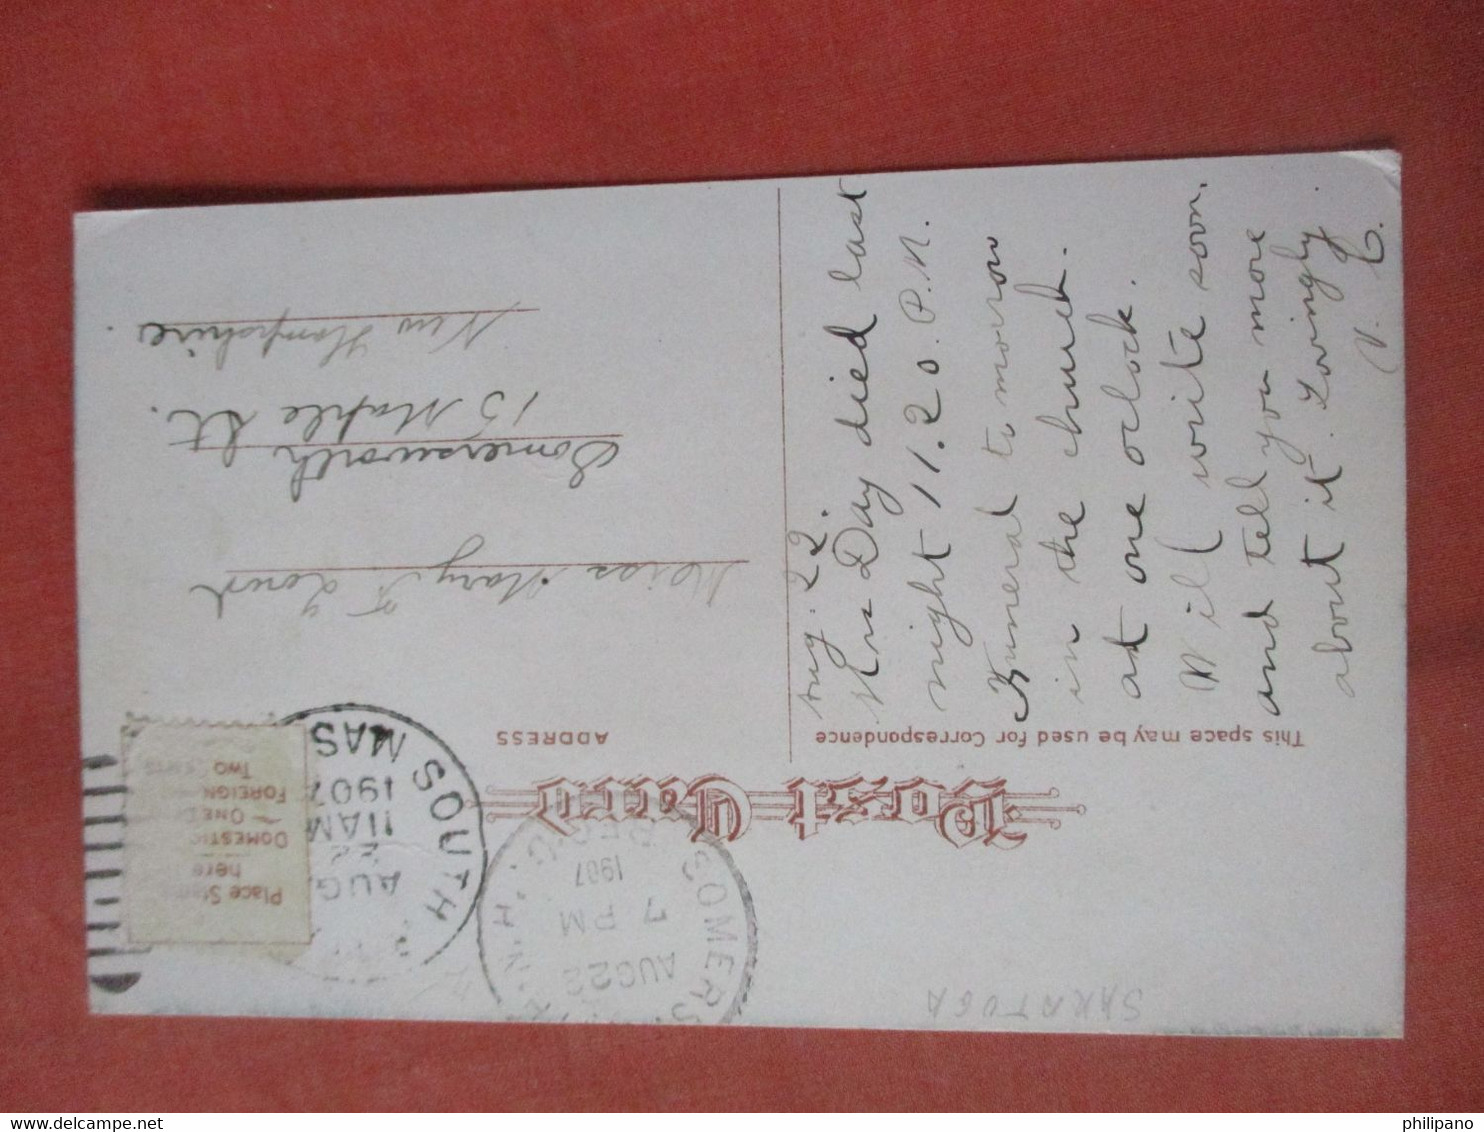 Post Card
This space may be used for Correspondence
ADDRESS
Place
here
DOMESTIC
ONE
FOREIGN
TWO
SOUTH
AUG
11 AM
1907
MAS
SOMERS
AUG 22
7 PM
1907
N.H.
Aug. 22.
Mrs Day died last
night 11.20. P.M.
Funeral to morrow
in the church.
at one oclock.
Will write soon.
and tell you more
about it. Lovingly.
V. C.
Mary F. Lord
Somersworth
15 Maple St.
New Hampshire.
SARATOGA
philipano
delcampe.net